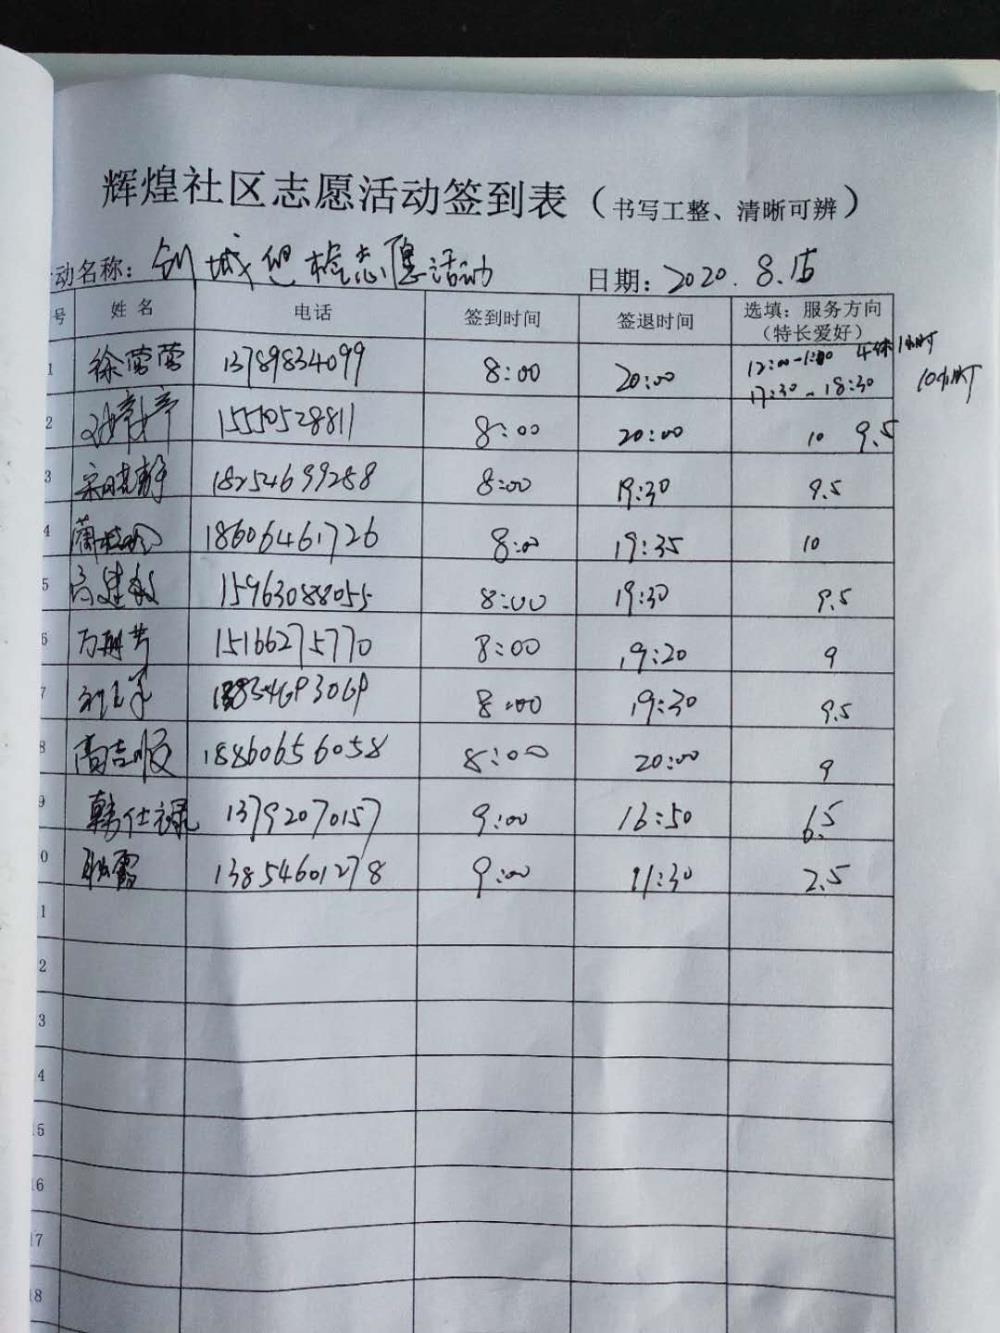 辉煌社区志愿活动签到表（书写工整、清晰可辨）
动名称：创城 志愿活动 日期：2020.8.15
号 姓名 电话 签到时间 签退时间 选填：服务方向（特长爱好）
1 徐莺莺 13789834099 8:00 20:00 12:00-1:00 午休1小时
17:30-18:30 10小时
2 15550528811 8:00 20:00 10 9.5
3 宋晓静 18254699288 8:00 19:30 9.5
4 18606461726 8:00 19:35 10
5 高建敏 15963088055 8:00 19:30 9.5
6 15166275770 8:00 19:20 9
7 8:00 19:30 9.5
8 高吉顺 18860656058 8:00 20:00 9
9 韩仕禄 13792070157 9:00 16:50 6.5
0 耿露 13854601278 9:00 11:30 2.5
1
2
3
4
15
16
17
18